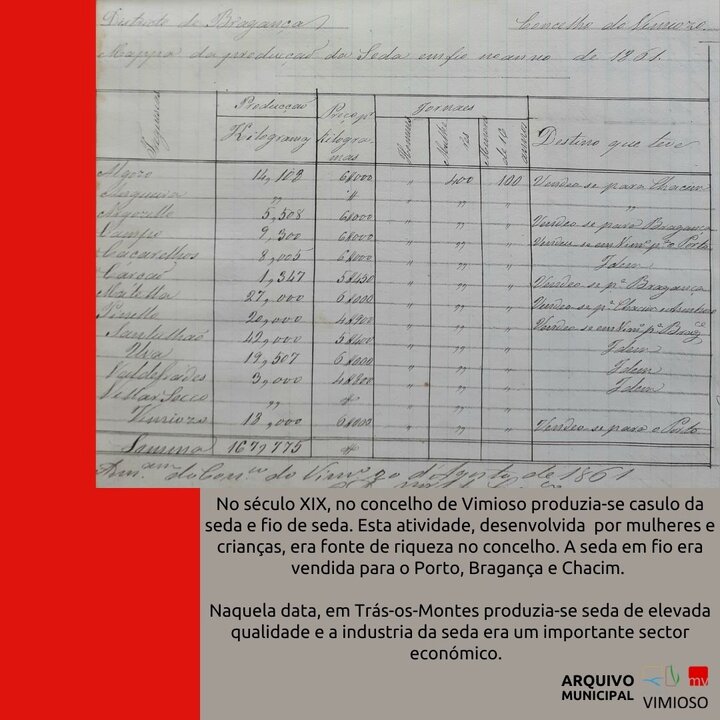 Districto de Bragança Concelho de Vimioso
Mappa da producção da Seda em fio no anno de 1861.
Freguesias Producção Kilogramas Preço pr Kilogramas Jornaes Homens Mulheres Menores de 10 annos Destino que teve
Algozo 14,102 6$000 " 400 100 Vendeo-se para Chacim
Angueira " " " " " "
Argozello 5,508 6$000 " " " Vendeo-se para Bragança
Campo 9,300 6$000 " " " Vendeo-se em Vimº pª o Porto
Cacarelhos 8,005 6$000 " " " Idem
Carção 1,347 5$450 " " " Vendeo-se pª Bragança
Matella 27,000 6$000 " " " Vendeo-se pª Chacim
Pinello 20,000 4$800 " " " Vendeo-se em Vimº pª Bragª
Santulhão 42,000 5$400 " " " Idem
Uva 19,507 6$000 " " " Idem
Valdefrades 3,000 4$800 " " " Idem
Villar Secco " " " " "
Vimioso 18,000 6$000 " " " Vendeo-se para o Porto
Somma 167,775 "
do Vimº de 1861
No século XIX, no concelho de Vimioso produzia-se casulo da
seda e fio de seda. Esta atividade, desenvolvida por mulheres e
crianças, era fonte de riqueza no concelho. A seda em fio era
vendida para o Porto, Bragança e Chacim.
Naquela data, em Trás-os-Montes produzia-se seda de elevada
qualidade e a industria da seda era um importante sector
económico.
ARQUIVO
MUNICIPAL
mv
VIMIOSO